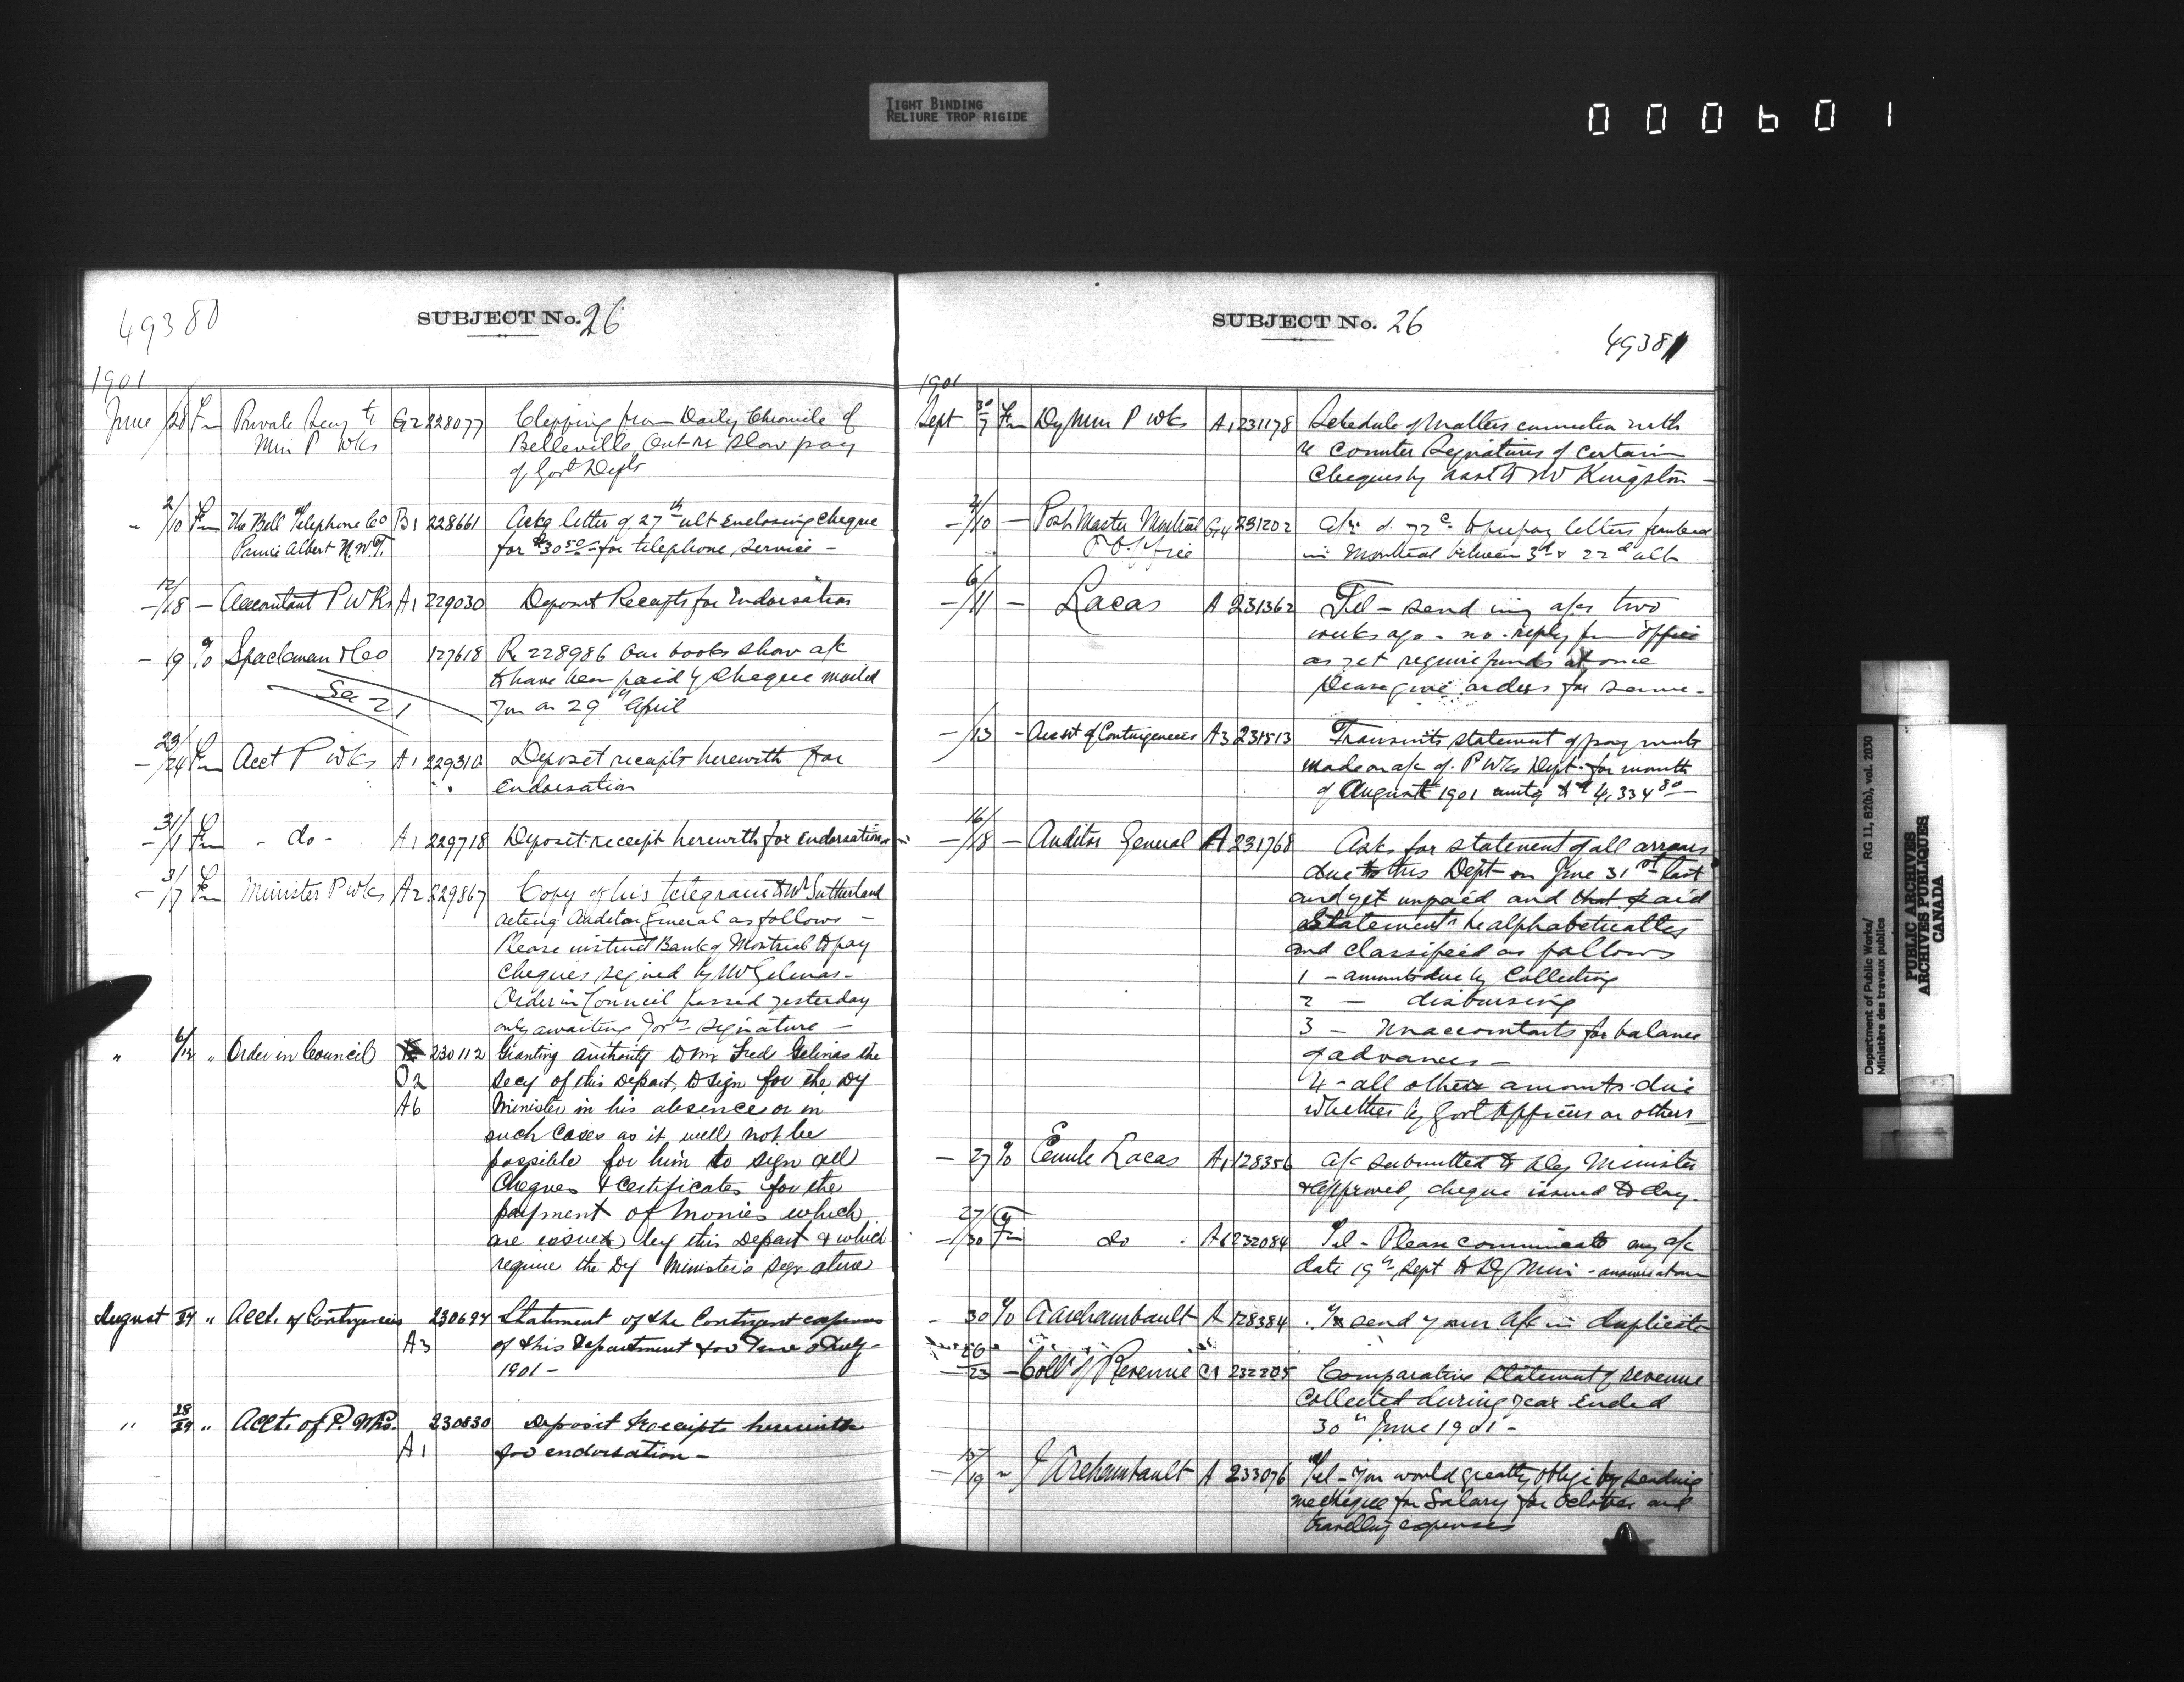 TIGHT BINDING
RELIURE TROP RIGIDE
000601
49380
SUBJECT No. 26
1901
June 28 Fm Private Secy to G2 228077 Clipping from Daily Chronicle of
Min P Wks Belleville Ont re slow pay
of Govt Depts
- 2/10 Fm The Bell Telephone Co B1 228661 Ackg letter of 27th ult enclosing cheque
Prince Albert N.W.T. for $30.50 for telephone service -
- 12/18 - Accountant P Wks A1 229030 Deposit Receipts for Endorsation
- 19 % Spackman & Co 127618 R 228986 Our books show a/c
to have been paid by Cheque mailed
See 21 you on 29th April
- 23/24 Fm Acct P Wks A1 229310 Deposit receipts herewith for
endorsation
- 31/1 Fm - do - A1 229718 Deposit receipt herewith for endorsation
- 31/7 Fm Minister P Wks A2 229867 Copy of his telegram to Mr Sutherland
acting Auditor General as follows -
Please instruct Bank of Montreal to pay
cheques signed by Mr Gelinas -
Order in Council passed yesterday
only awaiting Govrs signature -
" 6/12 " Order in Council 230112 Granting authority to Mr Fred Gelinas the
O2 secy of this Depart. to sign for the Dy
A6 Minister in his absence or in
such cases as it will not be
possible for him to sign all
Cheques & Certificates for the
payment of monies which
are issued by this Depart & which
require the Dy Minister's signature
August 24 " Acct. of Contingencies 230694 Statement of the Contingent expenses
A3 of this Department for June & July -
1901 -
" 28/29 " Acct. of P. Wks. 230830 Deposit Receipts herewith
A1 for endorsation -
SUBJECT No. 26
49381
1901
Sept 30/7 Fm Dy Min P Wks A1 231178 Schedule of matters connection with
re Counter Signatures of certain
Cheques by
Kingston -
- 2/10 - Post Master Montreal G4 231202 a/c of 72c to prepay letters
P Office in Montreal between 3d & 22d ult
- 6/11 - Lacas A 231362 Tel - send my a/c two
weeks ago - no reply fm office
as yet require funds at once
Please give orders for same -
- /13 - Acct of Contingencies A3 231513 Transmits statement of payments
made on a/c of P Wks Dept. for month
of August 1901 amtg to $4,334.80 -
- 16/18 - Auditor General A1 231768 Asks for statement of all arrears
due to this Dept on June 31st last
and yet unpaid and that said
Statement be alphabetically
and classified as follows
1 - amounts due by Collecting
2 - disbursing
3 - Unaccountants for balance
of advances -
4 - all other amounts due
whether by Govt Officers or others
- 27 % Emile Lacas A1 128356 a/c submitted to Dy Minister
& approved, cheque issued to day.
- 27/30 Fm do A1 232084 Tel - Please communicate my a/c
date 19th Sept to Dy Min -
- 30 % A Archambault A 128384 To send your a/c in duplicate
- 26/23 - Collr of Revenue C1 232205 Comparative Statement of revenue
collected during year ended
30th June 1901 -
- 15/19 " J Archambault A 233076 Tel - You would greatly oblige by sending
me cheque for Salary for October and
travelling expenses
Department of Public Works/ RG 11, B2(b), vol. 2030
Ministère des travaux publics
PUBLIC ARCHIVES
ARCHIVES PUBLIQUES
CANADA